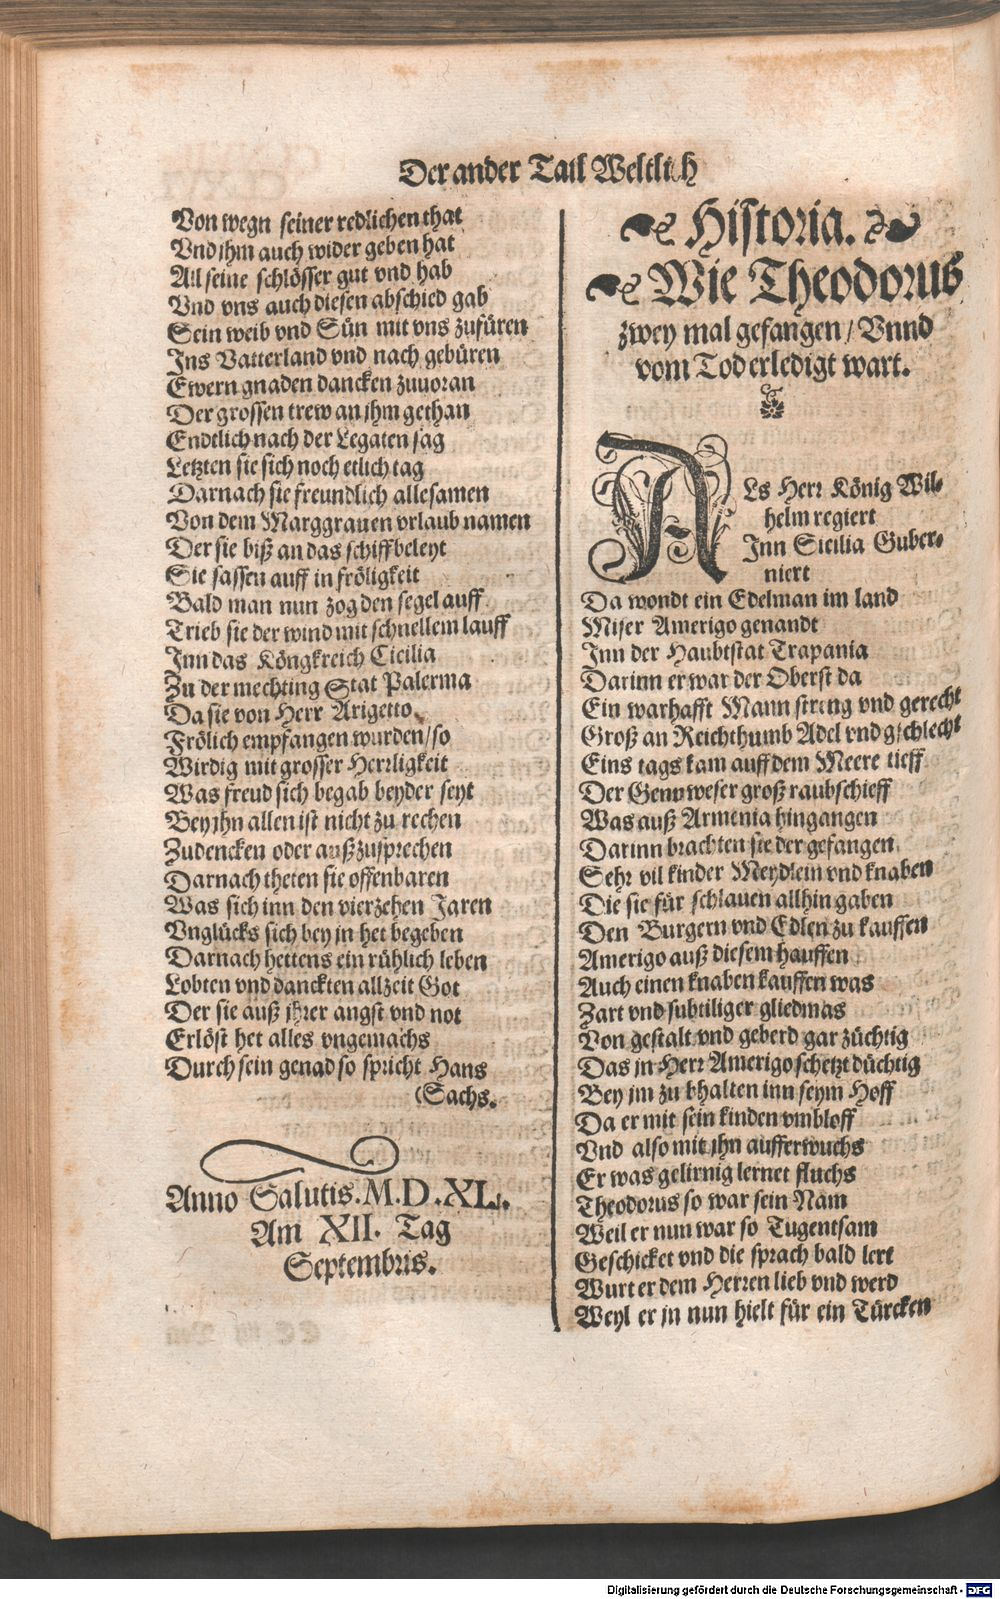 Der ander Tail Weltlich
Von wegn seiner redlichen that
Vnd jhm auch wider geben hat
All seine schlösser gut vnd hab
Vnd vns auch diesen abschied gab
Sein weib vnd Sün mit vns zufüren
Jns Vatterland vnd nach gebüren
Ewern gnaden dancken zuuoran
Der grossen trew an jhm gethan
Endtlich nach der Legaten sag
Letzten sie sich noch etlich tag
Darnach sie freundlich allesamen
Von dem Marggrauen vrlaub namen
Der sie biß an das schiff beleyt
Sie sassen auff in fröligkeit
Bald man nun zog den segel auff
Trieb sie der wind mit schnellem lauff
Jnn das Köngkreich Cicilia
Zu der mechting Stat Palerma
Da sie von Herr Arigetto
Frölich empfangen wurden/so
Wirdig mit grosser Herrligkeit
Was freud sich begab beyder seyt
Bey jhn allen ist nicht zu rechen
Zudencken oder außzusprechen
Darnach theten sie offenbaren
Was sich inn den vierzehen Jaren
Vnglücks sich bey jn het begeben
Darnach hettens ein rühlich leben
Lobten vnd danckten allzeit Got
Der sie auß jhrer angst vnd not
Erlöst het alles vngemachs
Durch sein genad so spricht Hans
(Sachs.
Anno Salutis. M. D. XL.
Am XII. Tag
Septembris.
Historia.
Wie Theodorus
zwey mal gefangen/ Vnnd
vom Tod erledigt wart.
ALs Herr König Wil-
helm regiert
Jnn Sicilia Guber-
niert
Da wondt ein Edelman im land
Miser Amerigo genandt
Jnn der Haubtstat Trapania
Darinn er war der Oberst da
Ein warhafft Mann streng vnd gerecht
Groß an Reichthumb Adel vnd gschlecht
Eins tags kam auff dem Meere tieff
Der Genoweser groß raubschieff
Was auß Armenia hingangen
Darinn brachten sie der gefangen
Sehr vil kinder Meydlein vnd knaben
Die sie für schlauen allhin gaben
Den Burgern vnd Edlen zu kauffen
Amerigo auß diesem hauffen
Auch einen knaben kauffen was
Zart vnd subtiliger gliedmas
Von gestalt vnd geberd gar züchtig
Das jn Herr Amerigo schetzt düchtig
Bey jm zu bhalten inn seym Hoff
Da er mit sein kinden vmbloff
Vnd also mit jhn aufferwuchs
Er was gelirnig lernet fluchs
Theodorus so war sein Nam
Weil er nun war so Tugentsam
Geschicket vnd die sprach bald lert
Wurt er dem Herren lieb vnd werd
Weyl er jn nun hielt für ein Türcken
Digitalisierung gefördert durch die Deutsche Forschungsgemeinschaft - DFG